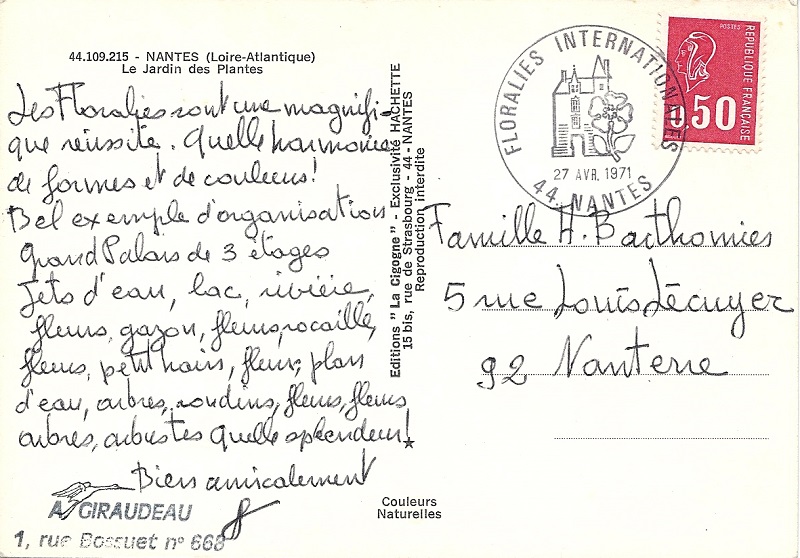 44.109.215 - NANTES (Loire-Atlantique)
Le Jardin des Plantes
Les Floralies sont une magnifi-
que réussite. Quelle harmonie
de formes et de couleurs!
Bel exemple d'organisation
Grand Palais de 3 étages
Jets d'eau, lac, rivière,
fleurs, gazon, fleurs, rocaille,
fleurs, petit bain, fleurs, plans
d'eau, arbres, rondins, fleurs, fleurs
arbres, arbustes quelle splendeur!
Bien amicalement
A. GIRAUDEAU
1, rue Bossuet n° 668
Editions " La Cigogne " - Exclusivité HACHETTE
15 bis, rue de Strasbourg - 44 - NANTES
Reproduction interdite
Couleurs
Naturelles
FLORALIES INTERNATIONALES
27 AVR. 1971
44. NANTES
POSTES
REPUBLIQUE FRANÇAISE
0.50
Famille A. Barthomies
5 rue Louis Lécuyer
92 Nanterre